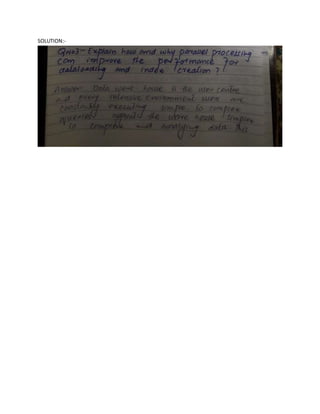 SOLUTION:-
Ques3- Explain how and why parallel processing
can improve the performance for
dataloading and index creation?
Answer: Data ware house is the user centre
and query intensive environment users are
constantly executing simple to complex
queries the ware house
to complex and analyzing data this